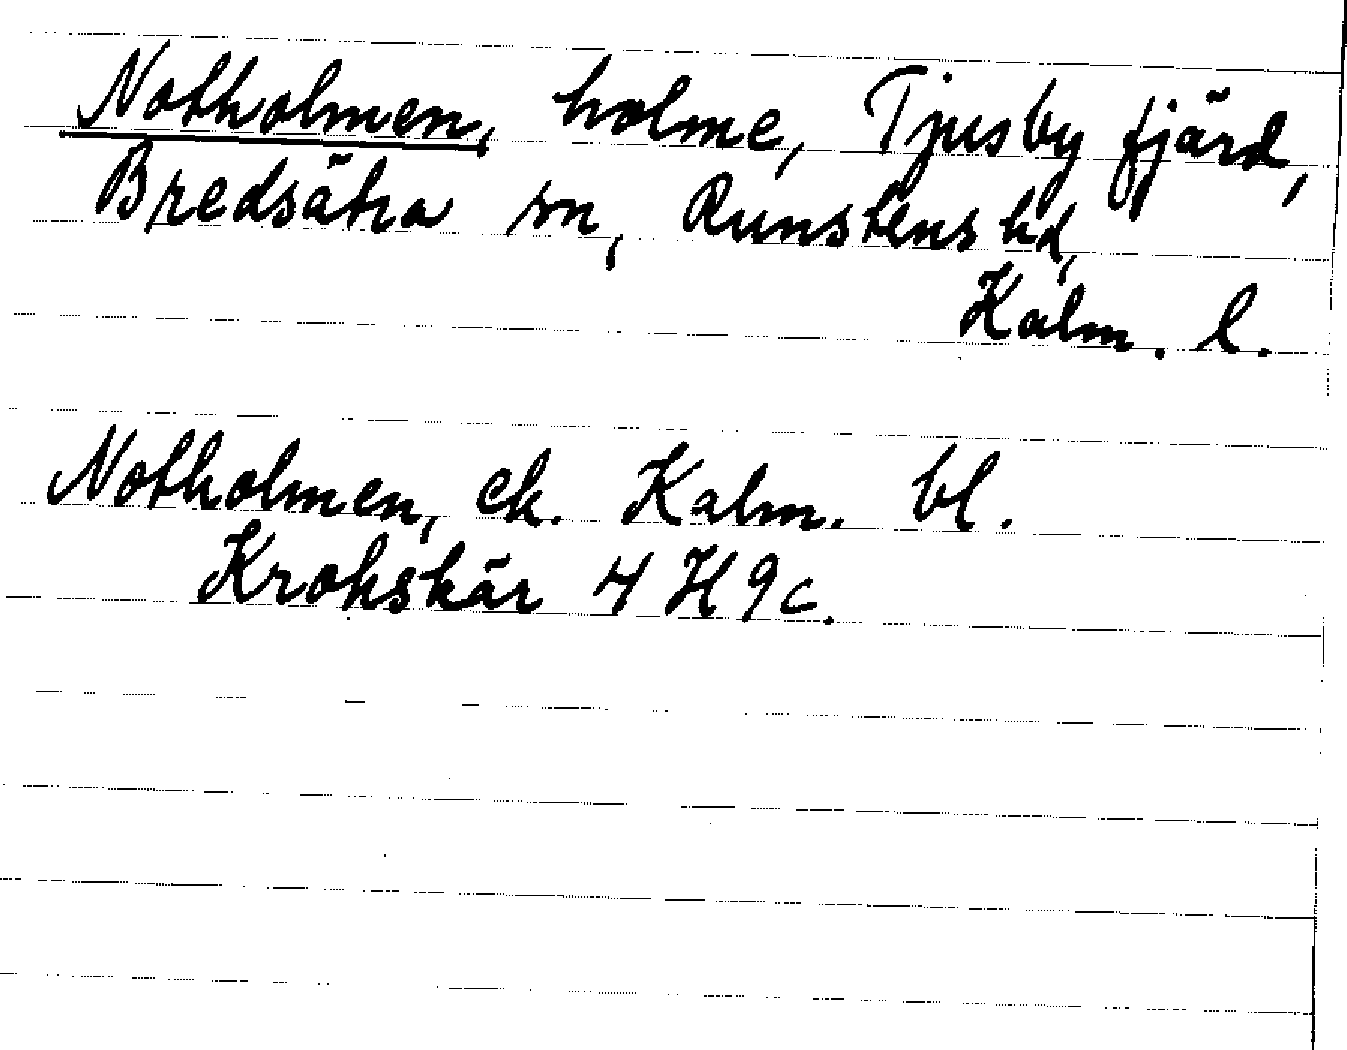 Notholmen, holme, Tjusby fjärd,
Bredsätra sn, Runstens hd,
Kalm. l.
Notholmen, ek. Kalm. bl.
Krokskär 4 H 9c.